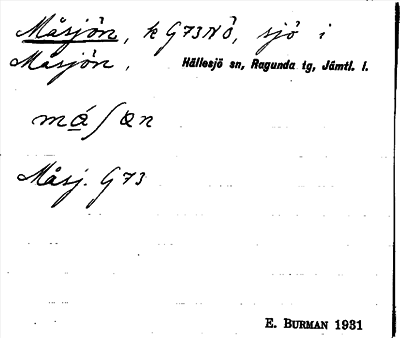 Måsjön, k G73NÖ, sjö i
Måsjön, Hällesjö sn, Ragunda tg, Jämtl. l.
má̱ʃɷn
Måsj. G 73
E. BURMAN 1931